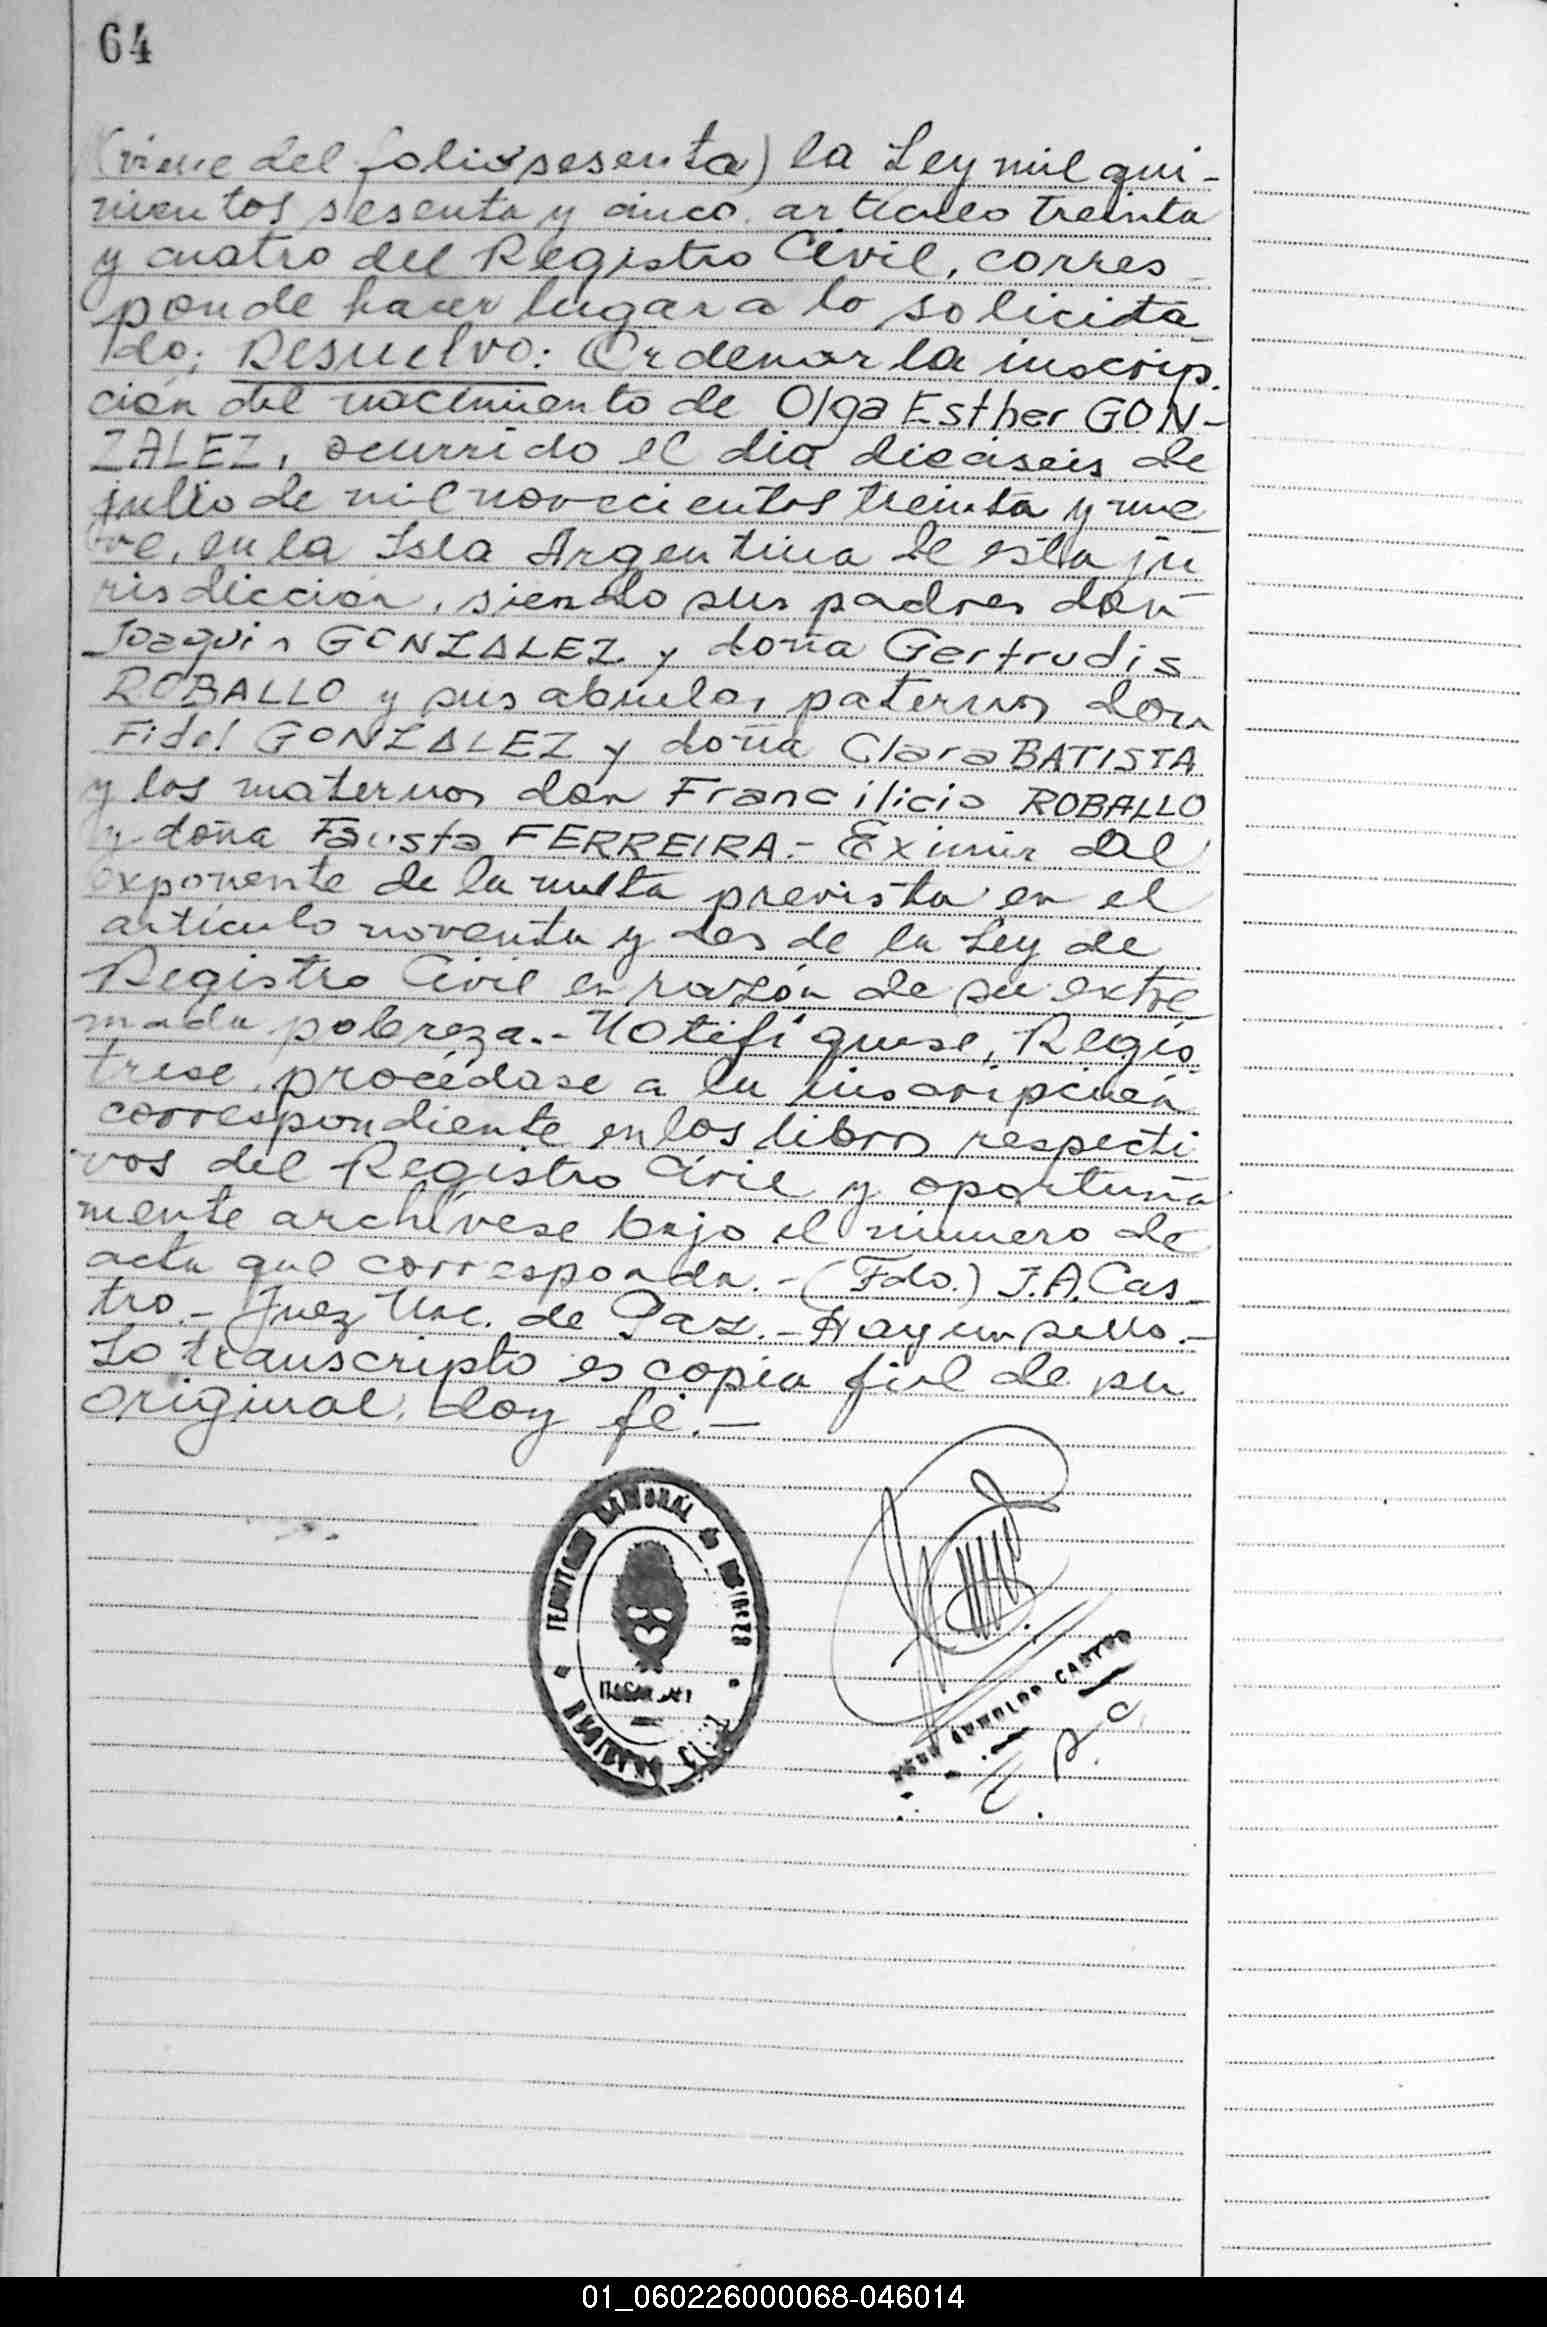 64
(viene del folio sesenta) la Ley mil qui-
nientos sesenta y cinco, artículo treinta
y cuatro del Registro Civil, corres-
ponde hacer lugar a lo solicita
do; Resuelvo: Ordenar la inscrip.
ción del nacimiento de Olga Esther GON-
ZALEZ, ocurrido el dia dieciseis de
julio de mil novecientos treinta y nue
ve, en la Isla Argentina de esta ju
risdicción, siendo sus padres don
Joaquin GONZALEZ y doña Gertrudis
ROBALLO y sus abuelos paternos don
Fidel GONZALEZ y doña Clara BATISTA
y los maternos don Francilicio ROBALLO
y doña Fausta FERREIRA.- Eximir al
exponente de la multa prevista en el
artículo noventa y dos de la Ley de
Registro Civil en razón de su extre
mada pobreza.- Notifiquese, Regis
trese, procédase a la inscripción
correspondiente en los libros respecti
vos del Registro Civil y oportuna
mente archívese bajo el número de
acta que corresponda.- (Fdo.) J.A. Cas-
tro.- Juez Nac. de Paz.- Hay un sello.-
Lo transcripto es copia fiel de su
original, doy fé.-
TERRITORIO NACIONAL de MISIONES
CASTRO
01_060226000068-046014